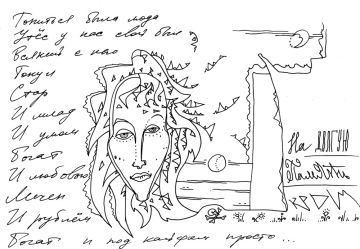 Топиться была мода
Утёс у нас свой был
Всякий с нас
Тонул
Стар
И млад
И умом
Богат
И любовью
Мечен
И рублём
Богат и под кайфом просто...
На ДОЛГУЮ
ПАМЯТЬ